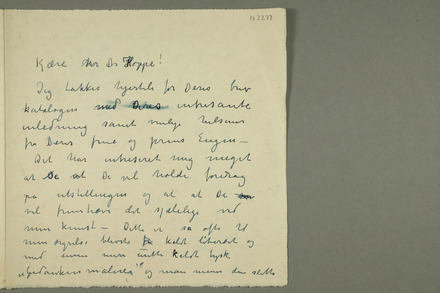 N 3273
Kære Herr Dr Hoppe!
Jeg takker hjertelig for Deres brev
katalogen med Deres intresante
inledning samt venlige hilsener
fra Deres frue og prins Eugen –
Det har intreseret mig meget
at De vil holde foredrag
på utstillingen og at De
vil fremhæve det sjælelige ved
min kunst – Dette er så ofte
blevet kaldt literært og
med kaldt tysk
"gedankenmalerei" og man mener den slette